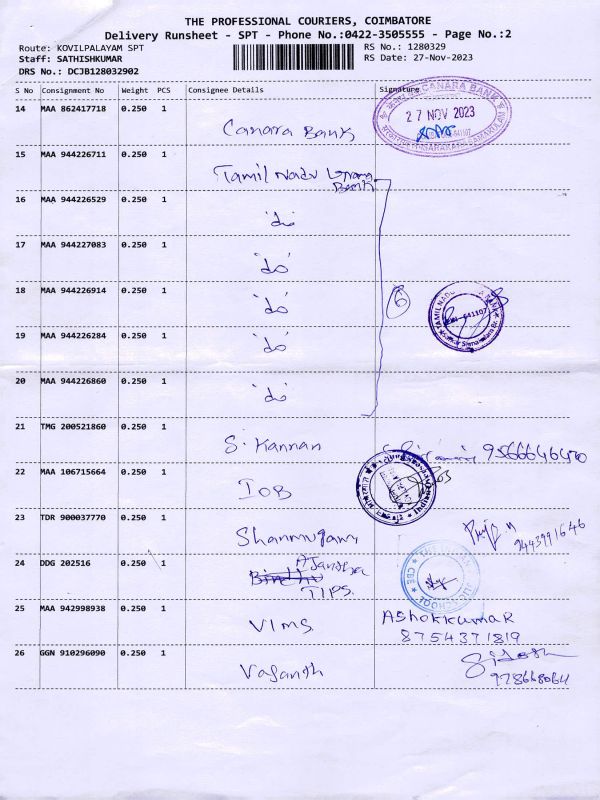 THE PROFESSIONAL COURIERS, COIMBATORE
Delivery Runsheet - SPT - Phone No.:0422-3505555 - Page No.:2
Route: KOVILPALAYAM SPT RS No.: 1280329
Staff: SATHISHKUMAR RS Date: 27-Nov-2023
DRS No.: DCJB128032902
S No Consignment No Weight PCS Consignee Details Signature
CANARA BANK
27 NOV 2023
14 MAA 862417718 0.250 1
Canara Bank
15 MAA 944226711 0.250 1
Tamil Nadu Grama
Bank
16 MAA 944226529 0.250 1
'do'
17 MAA 944227083 0.250 1
'do'
18 MAA 944226914 0.250 1
'do' 6
641107
19 MAA 944226284 0.250 1
'do'
20 MAA 944226860 0.250 1
'do'
21 TMG 200521860 0.250 1
S. Kannan
22 MAA 106715664 0.250 1
IOB
23 TDR 900037770 0.250 1
Shanmugam
9443991646
24 DDG 202516 0.250 1
Ajantha
TIPS
25 MAA 942998938 0.250 1
VIMS. AShokkumar
8754371819
26 GGN 910296090 0.250 1
Vasanth